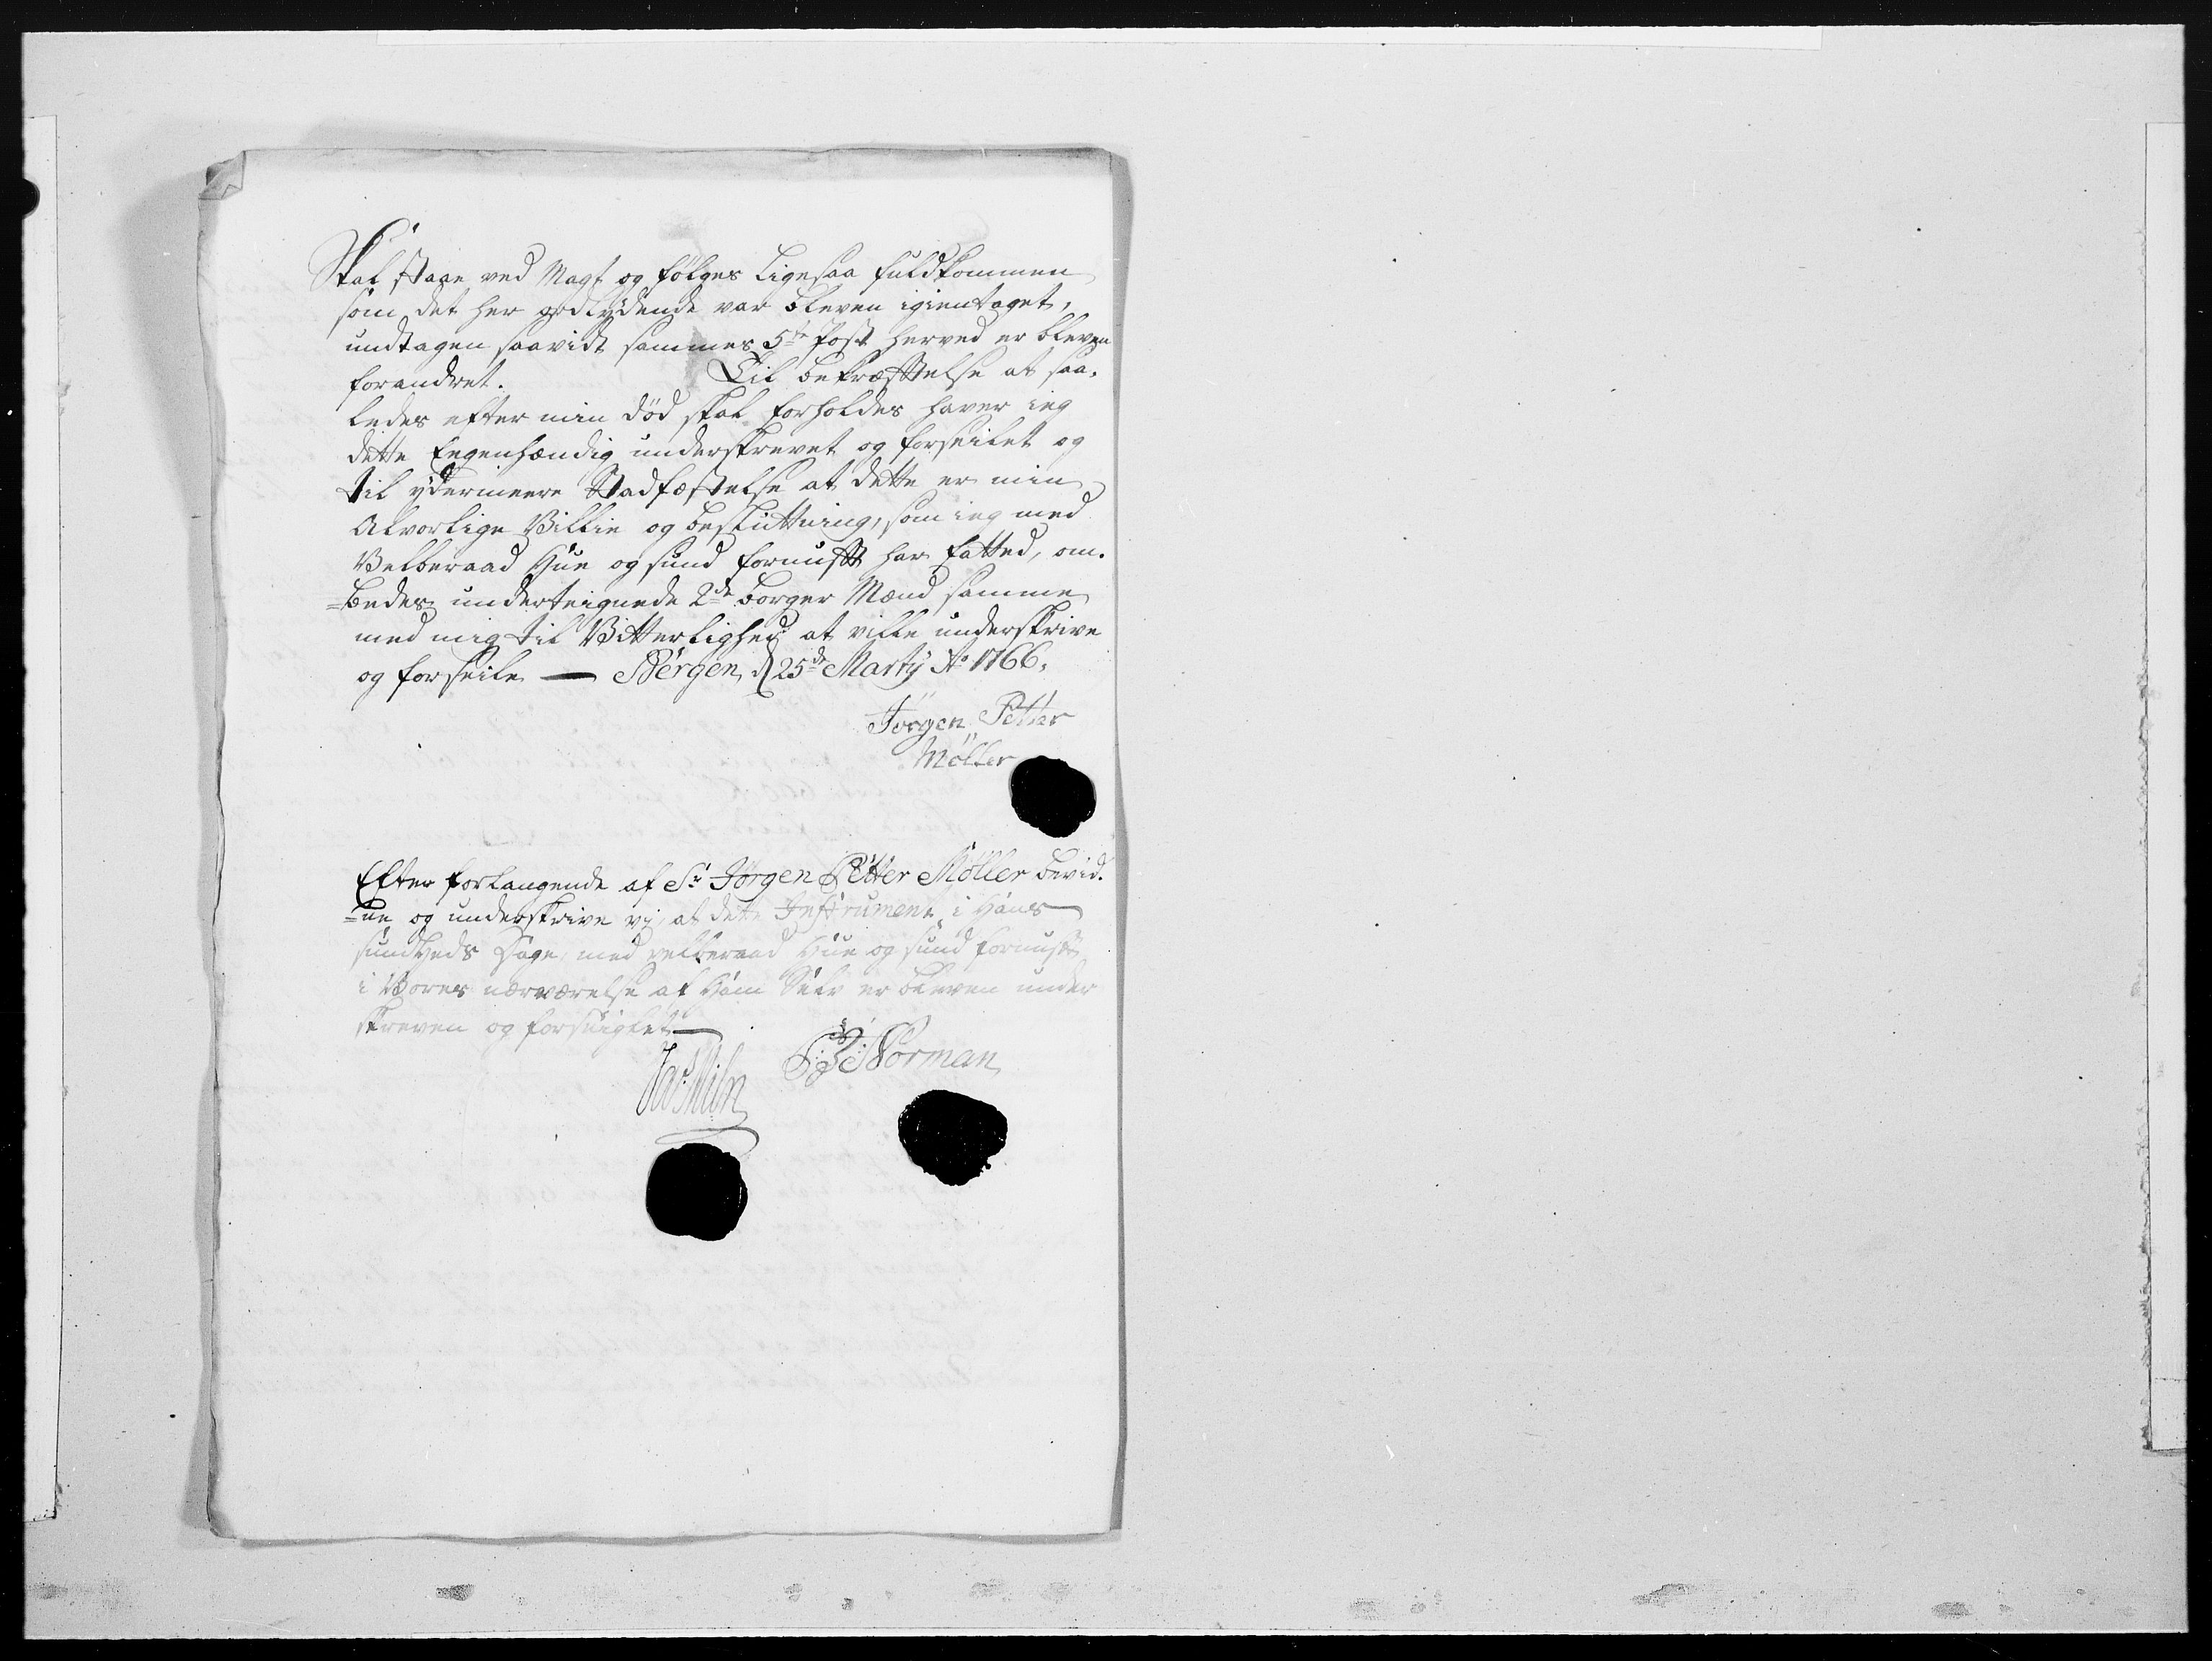 Skal staae ved Magt og følges ligesaa fuldkommen
som det her ordlydende var bleven igientaget,
undtagen saavidt sammes 5te Post herved er bleven
forandret. Til bekræftelse at saa-
ledes efter min død skal forholdes haver ieg
dette Eegenhændig underskrevet og forseilet og
til ydermeere Stadfæstelse at dette er min
Alvorlige Villie og beslutning, som ieg med
Velberaad Hue og sund fornuft har fatted, om-
=bedes underteignede 2de borger Mænd samme
med mig til Vitterlighed at ville underskrive
og forseile — Bergen d 25de Martÿ Ao 1766.
Jörgen Petter
Möller
Efter forlangende af Sr Jörgen Petter Möller bevid-
=ne og underskrive vj, at dette Instrument i Hans
sundheds Dage, med velberaad Hue og sund fornuft
i Vores nærværelse af Ham Selv er bleven under
skreven og forseiglet —
Jas Miln
Norman